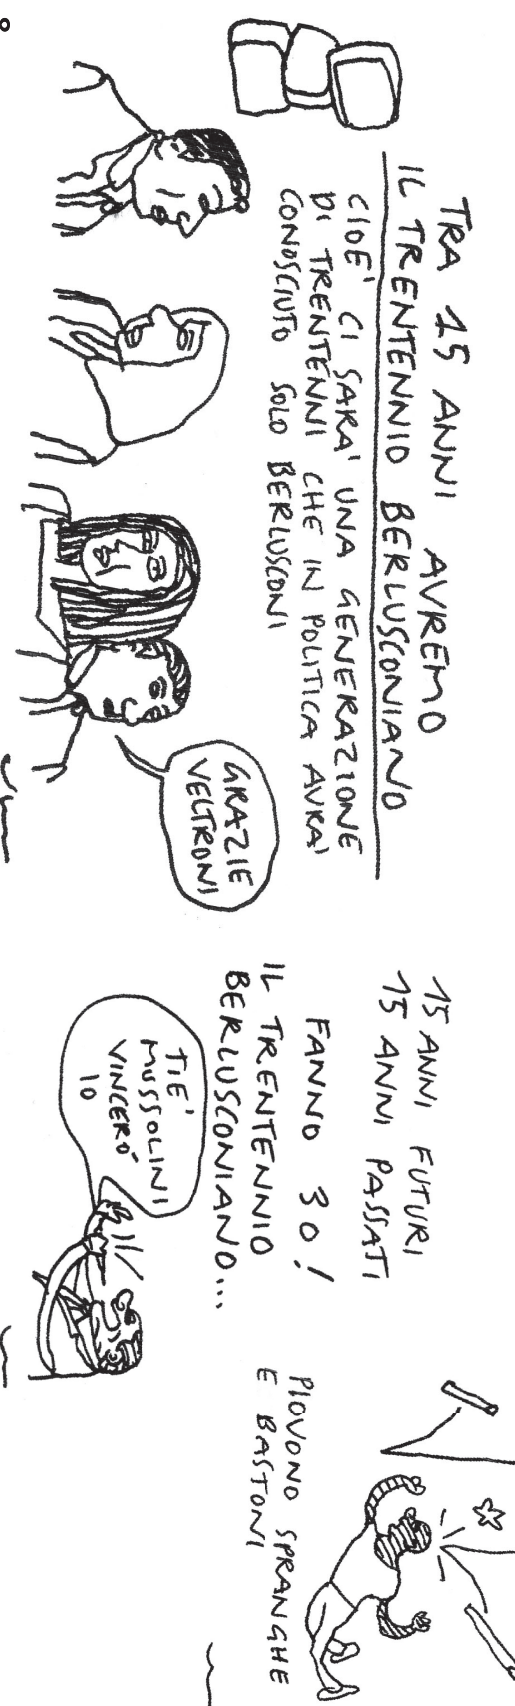 TRA 15 ANNI AVREMO
IL TRENTENNIO BERLUSCONIANO
CIOE' CI SARA' UNA GENERAZIONE
DI TRENTENNI CHE IN POLITICA AVRA'
CONOSCIUTO SOLO BERLUSCONI
GRAZIE
VELTRONI
15 ANNI FUTURI
15 ANNI PASSATI
FANNO 30!
IL TRENTENNIO
BERLUSCONIANO...
TIE'
MUSSOLINI
VINCERÒ
IO
PIOVONO SPRANGHE
E BASTONI